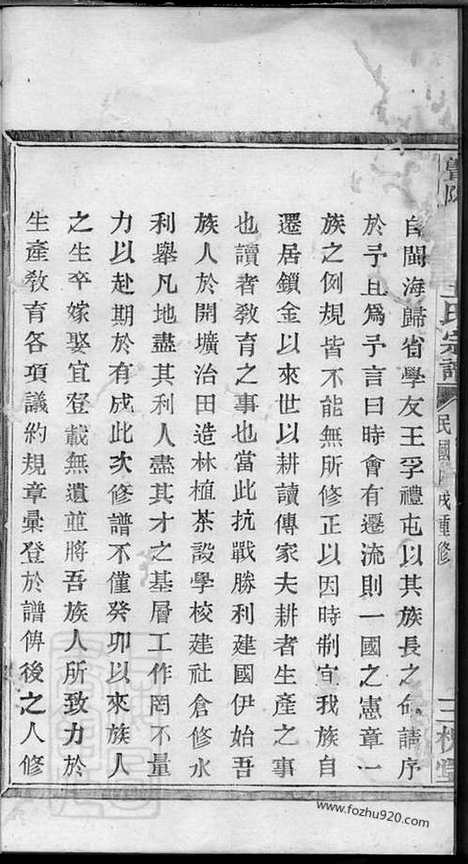 自閩海歸省學友王孚禮屯以其族長之命請序
於予且爲予言曰時會有遷流則一國之憲章一
族之例規皆不能無所修正以因時制宜我族自
遷居鎖金以來世以耕讀傳家夫耕者生產之事
也讀者教育之事也當此抗戰勝利建國伊始吾
族人於開壙治田造林植茶設學校建社倉修水
利舉凡地盡其利人盡其才之基層工作罔不量
力以赴期於有成此次修譜不僅癸卯以來族人
之生卒嫁娶宜登載無遺並將吾族人所致力於
生產教育各項議約規章彙登於譜俾後之人修
氏宗譜
民國 戌重修
三槐堂
www.fozhu920.com